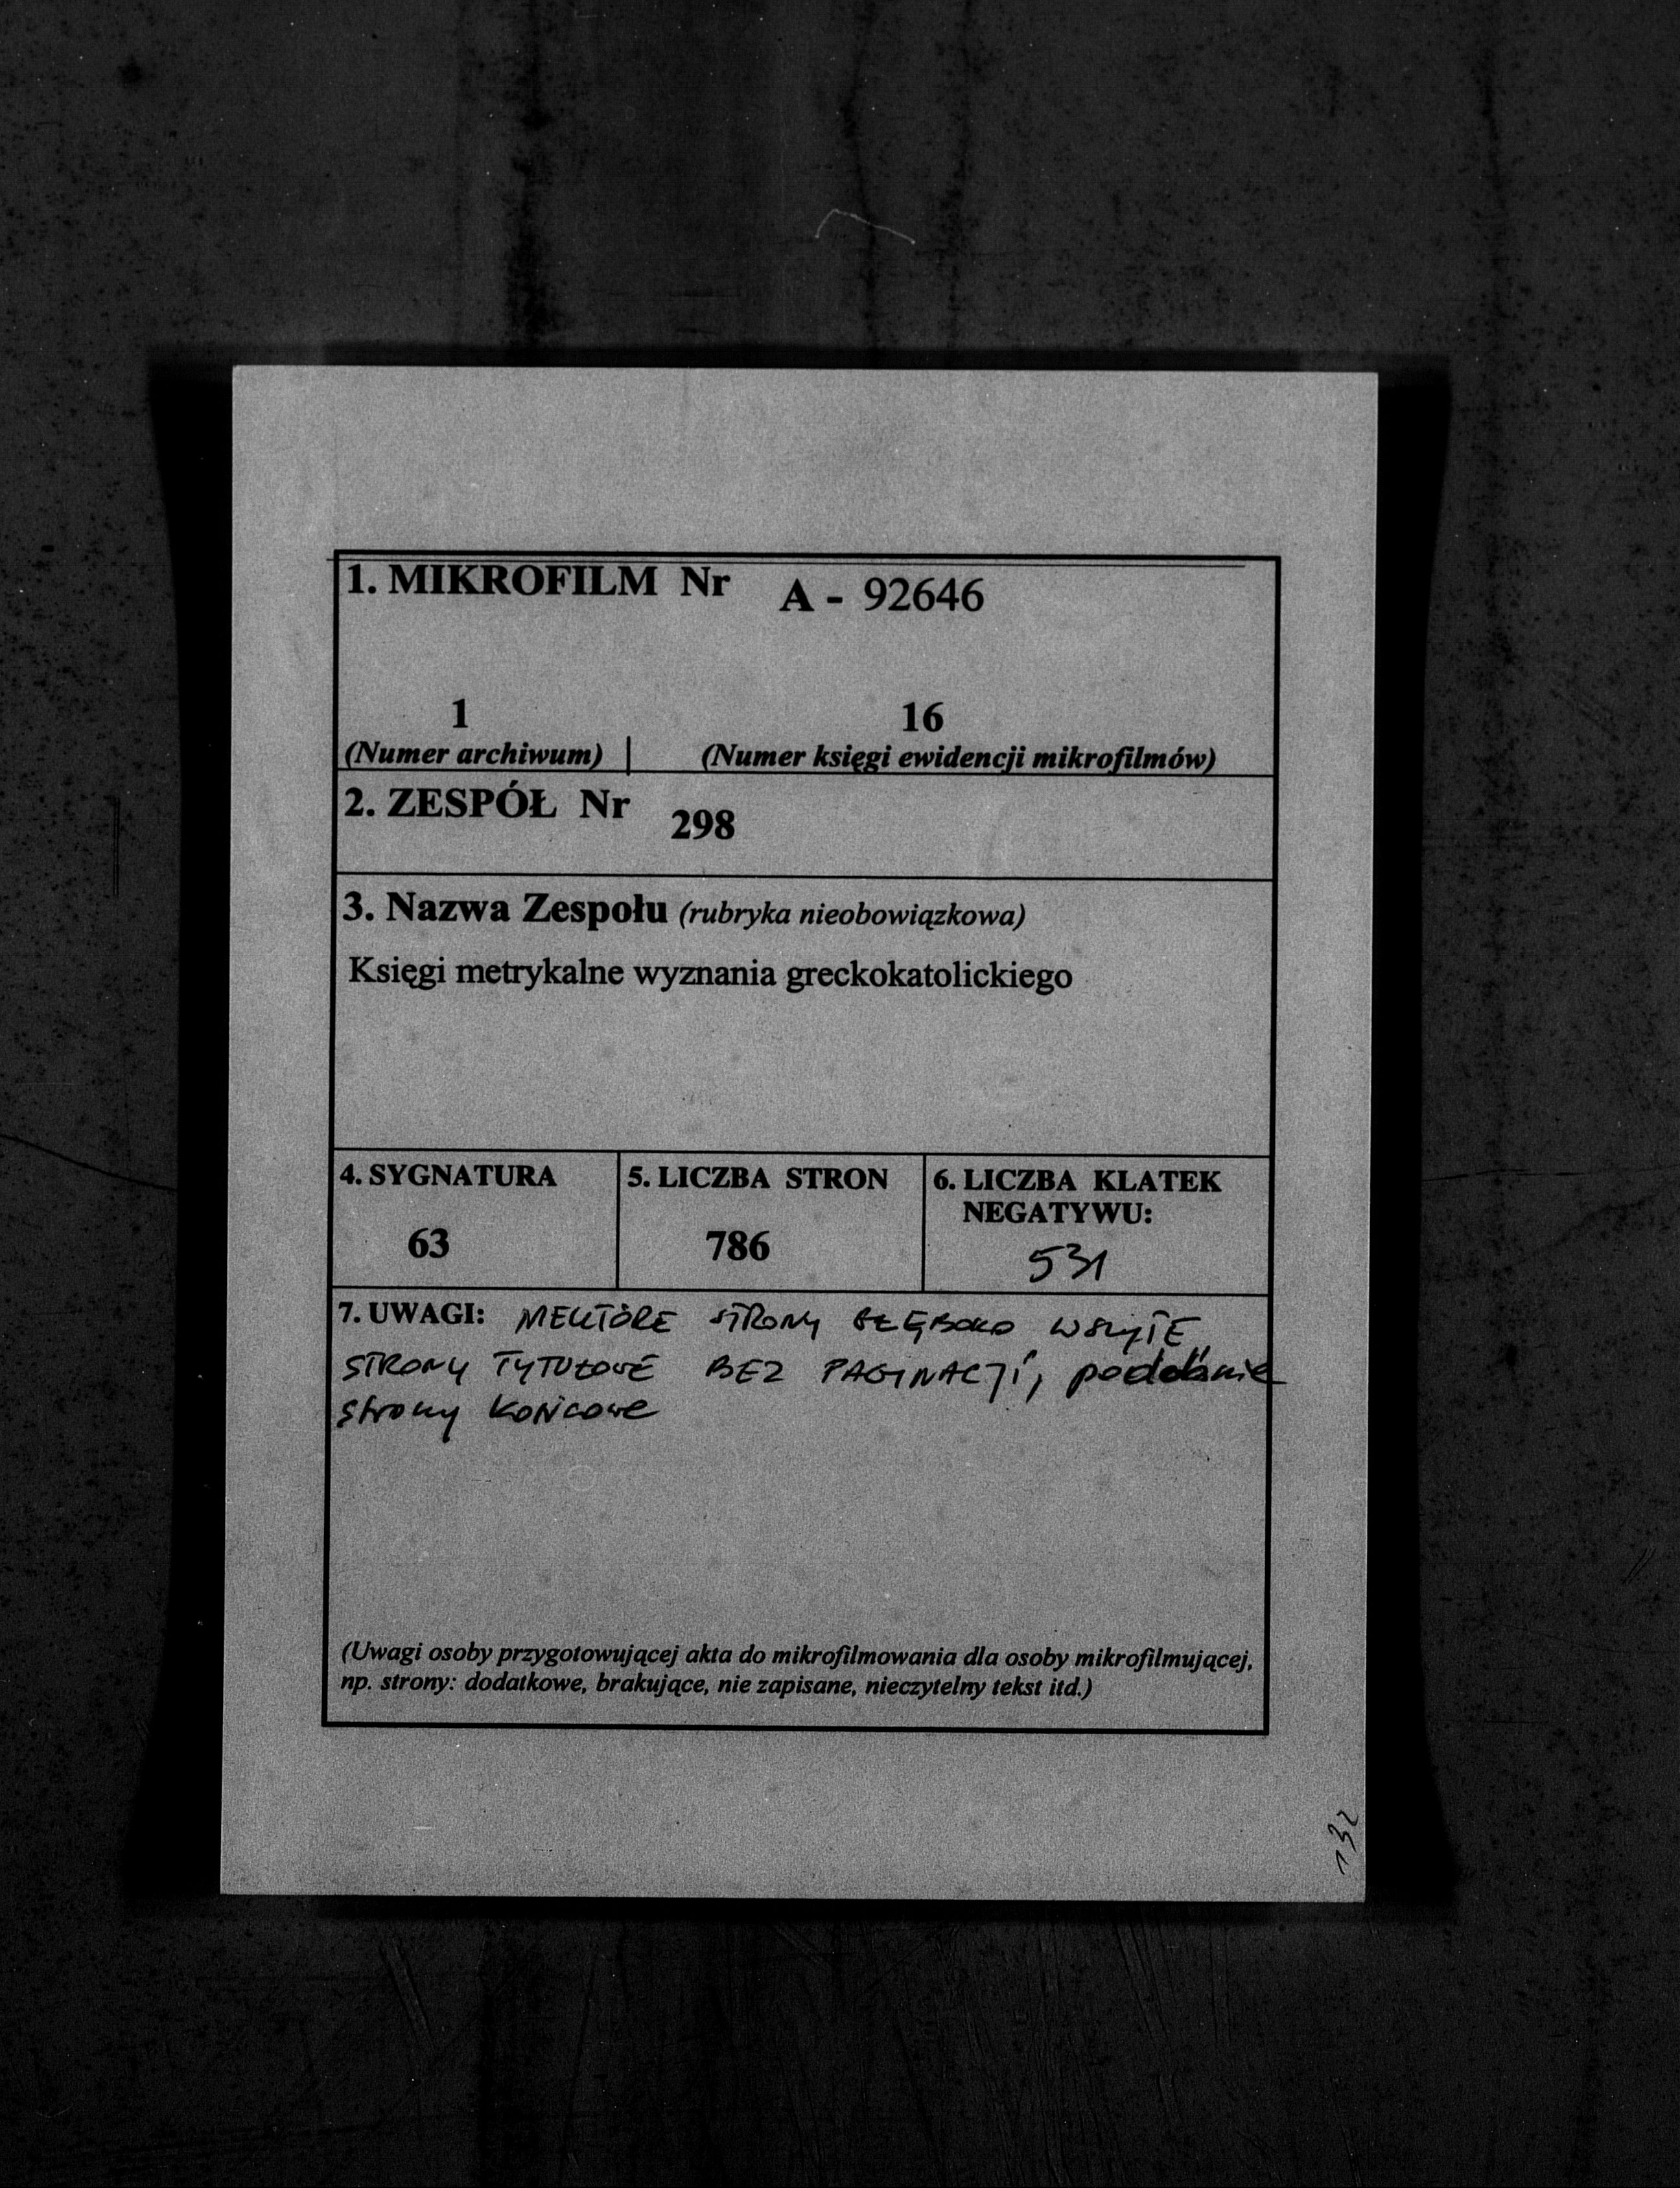 1. MIKROFILM Nr A - 92646
1 16
(Numer archiwum) | (Numer księgi ewidencji mikrofilmów)
2. ZESPÓŁ Nr 298
3. Nazwa Zespołu (rubryka nieobowiązkowa)
Księgi metrykalne wyznania greckokatolickiego
4. SYGNATURA
63
5. LICZBA STRON
786
6. LICZBA KLATEK
NEGATYWU:
531
7. UWAGI: NIEKTÓRE STRONY GŁĘBOKO WSZYTE
STRONY TYTUŁOWE BEZ PAGINACJI, podobnie
strony KOŃCOWE
(Uwagi osoby przygotowującej akta do mikrofilmowania dla osoby mikrofilmującej,
np. strony: dodatkowe, brakujące, nie zapisane, nieczytelny tekst itd.)
132